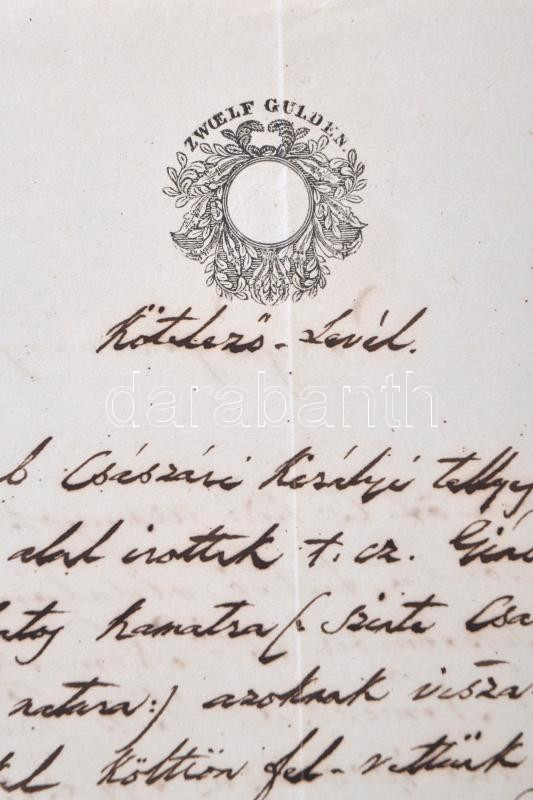 ZWŒLF GULDEN.
Kötelező-Levél.
darabanth
Császári Királyi
alol irottik t. cz.
kamatra (: Szinte Csa
natura:) azoknak visza
költtön fel-vettünk